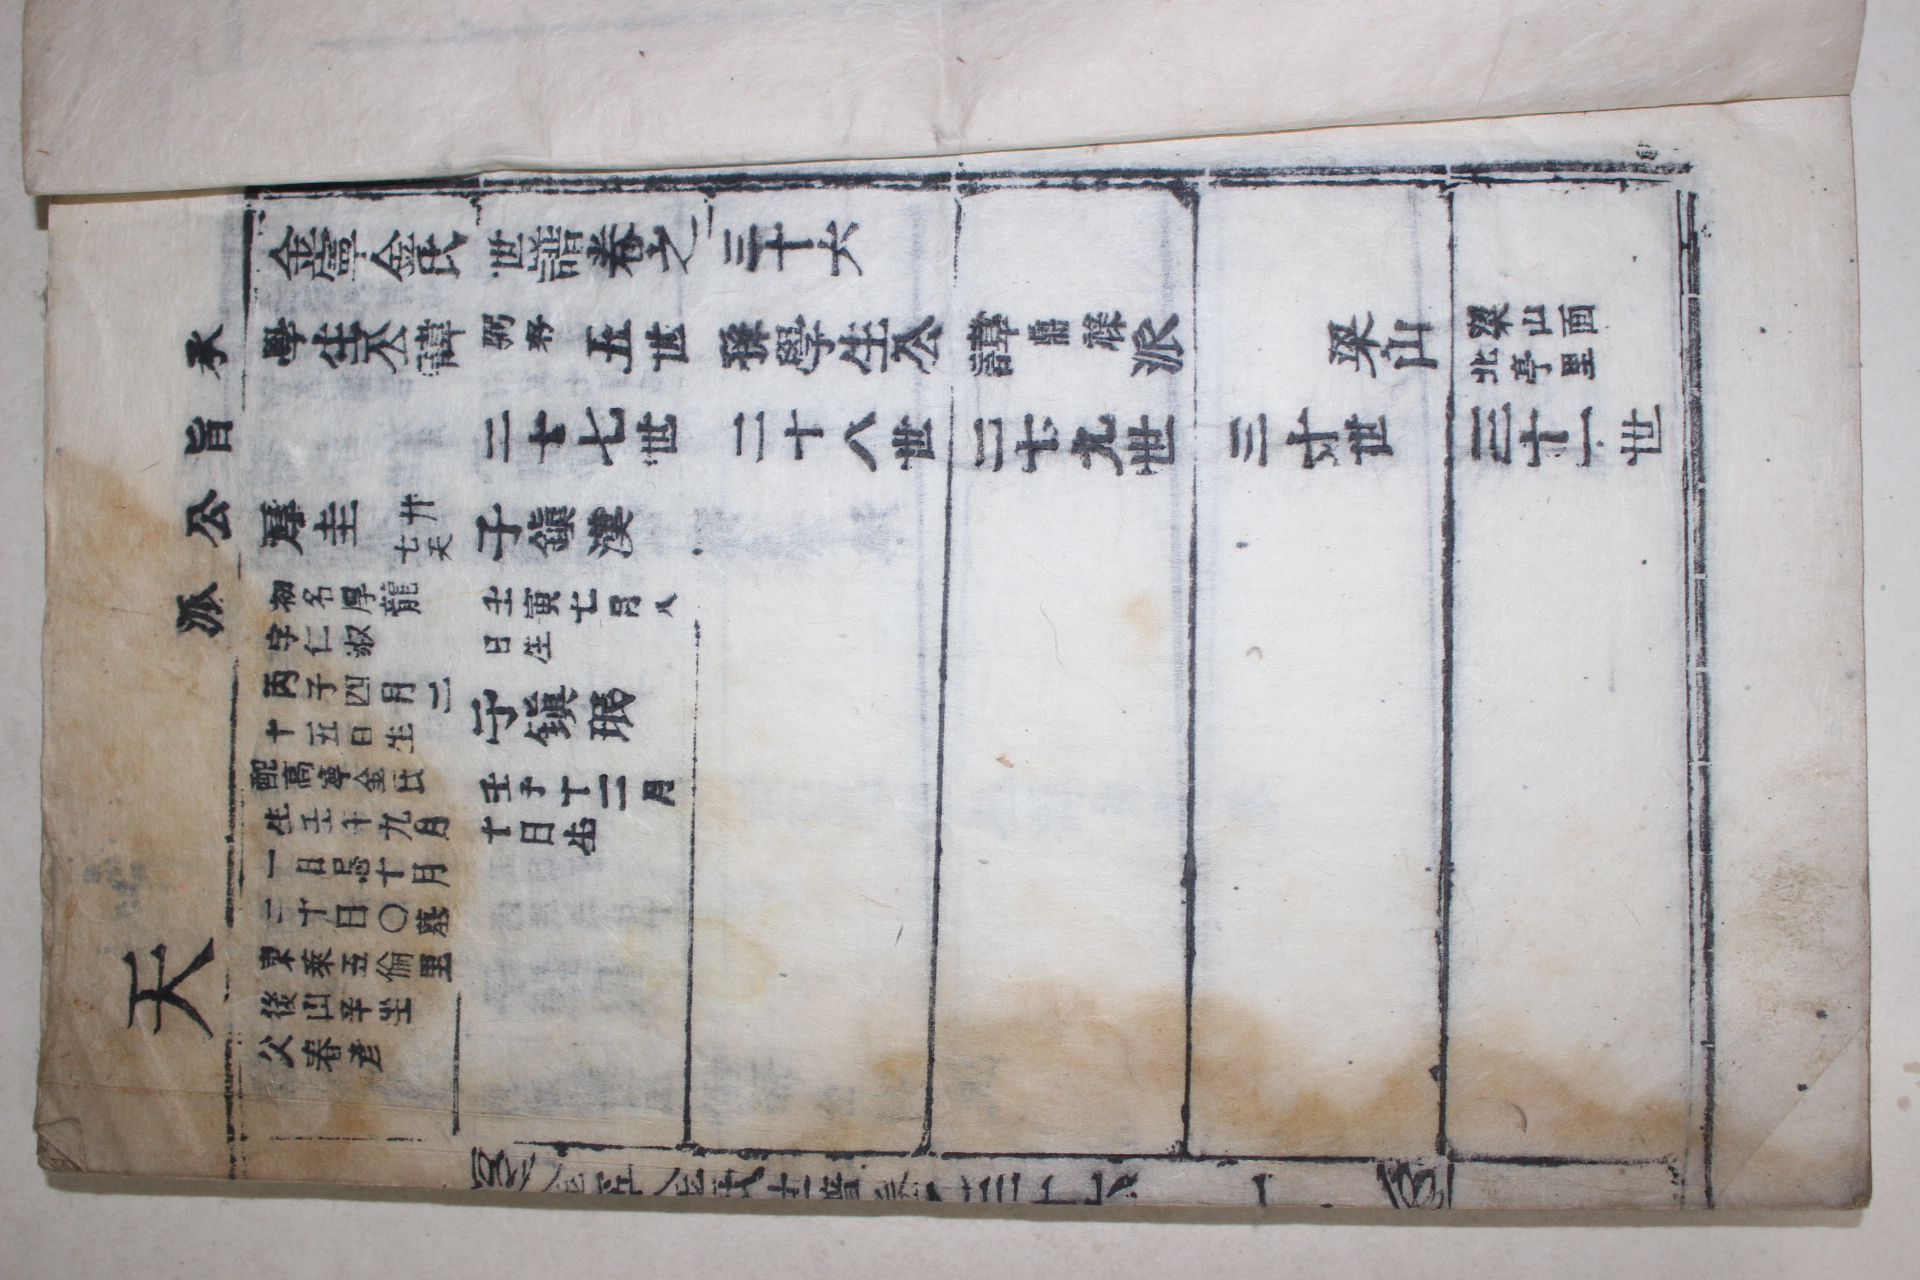 承旨公派
金寧金氏世譜卷之三十六
學生公諱弼存五世孫學生公諱鼎祿派 梁山 梁山面
北亭里
二十七世 二十八世 二十九世 三十世 三十一世
厚圭
廿
七天
初名厚龍
字仁淑
丙子四月二
十五日生
配高寧金氏
生壬午九月
一日忌十月
二十日〇墓
東萊五倫里
後山辛坐
父春彦
子鎭漢
壬寅七月八
日生
子鎭珉
壬子十二月
十日生
天
金寧金氏世譜卷之三十六
一